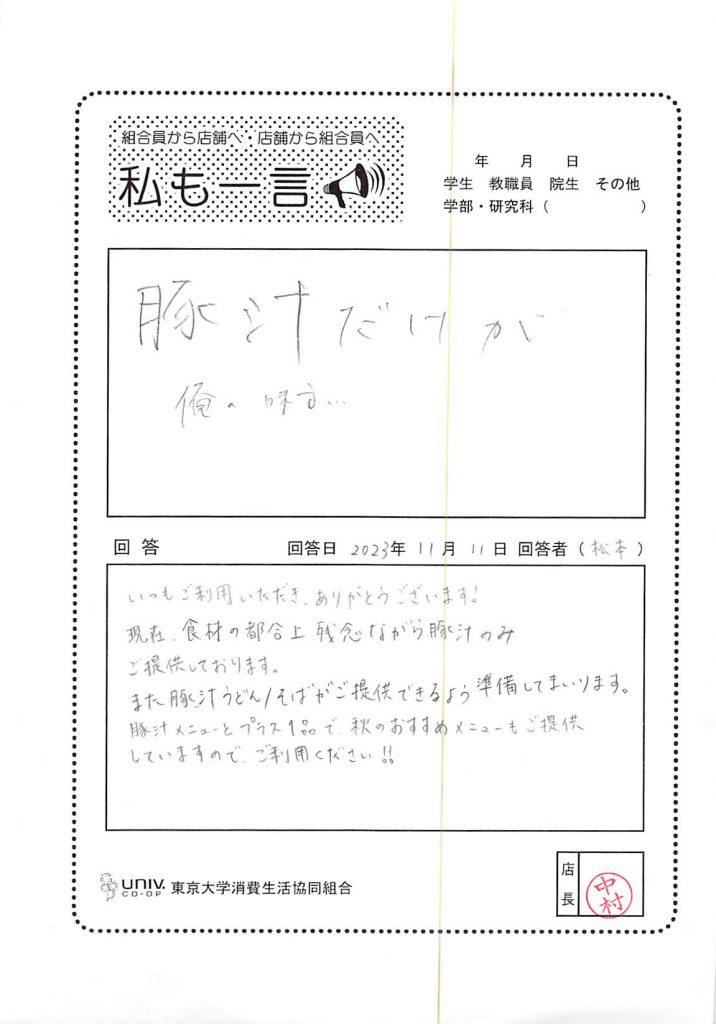 組合員から店舗へ・店舗から組合員へ
私も一言
年 月 日
学生 教職員 院生 その他
学部・研究科（ ）
豚汁だけが
俺の味方…
回答 回答日 2023年 11月 11日 回答者（松本）
いつもご利用いただき、ありがとうございます!
現在、食材の都合上 残念ながら豚汁のみ
ご提供しております。
また豚汁うどん/そばがご提供できるよう準備してまいります。
豚汁メニューとプラス1品で、秋のおすすめメニューもご提供
していますので、ご利用ください!!
UNIV. CO-OP 東京大学消費生活協同組合
店長 中村